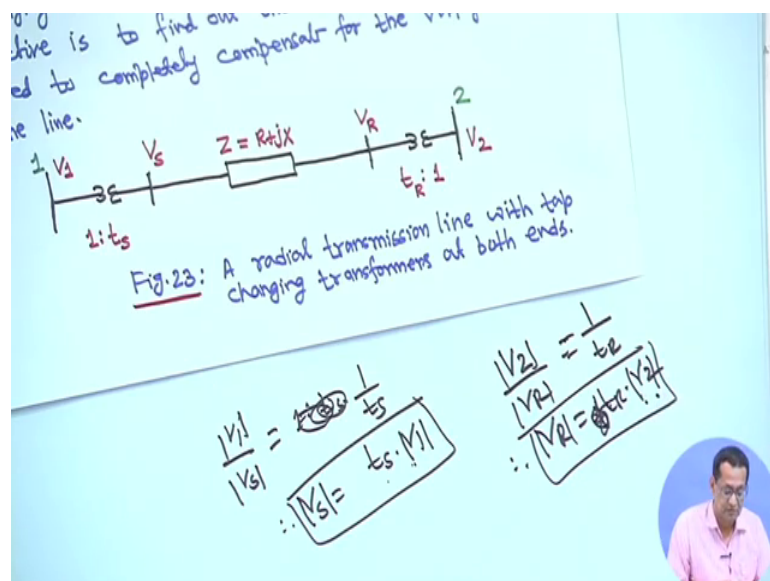 is to find out
to completely compensate for the
line.
1 V1 VS Z = R+jX VR 2 V2
1:tS tR:1
Fig.23: A radial transmission line with tap
changing transformers at both ends.
|V1|/|VS| = 1/tS
∴ |VS| = tS·|V1|
|V2|/|VR| = 1/tR
∴ |VR| = tR·|V2|